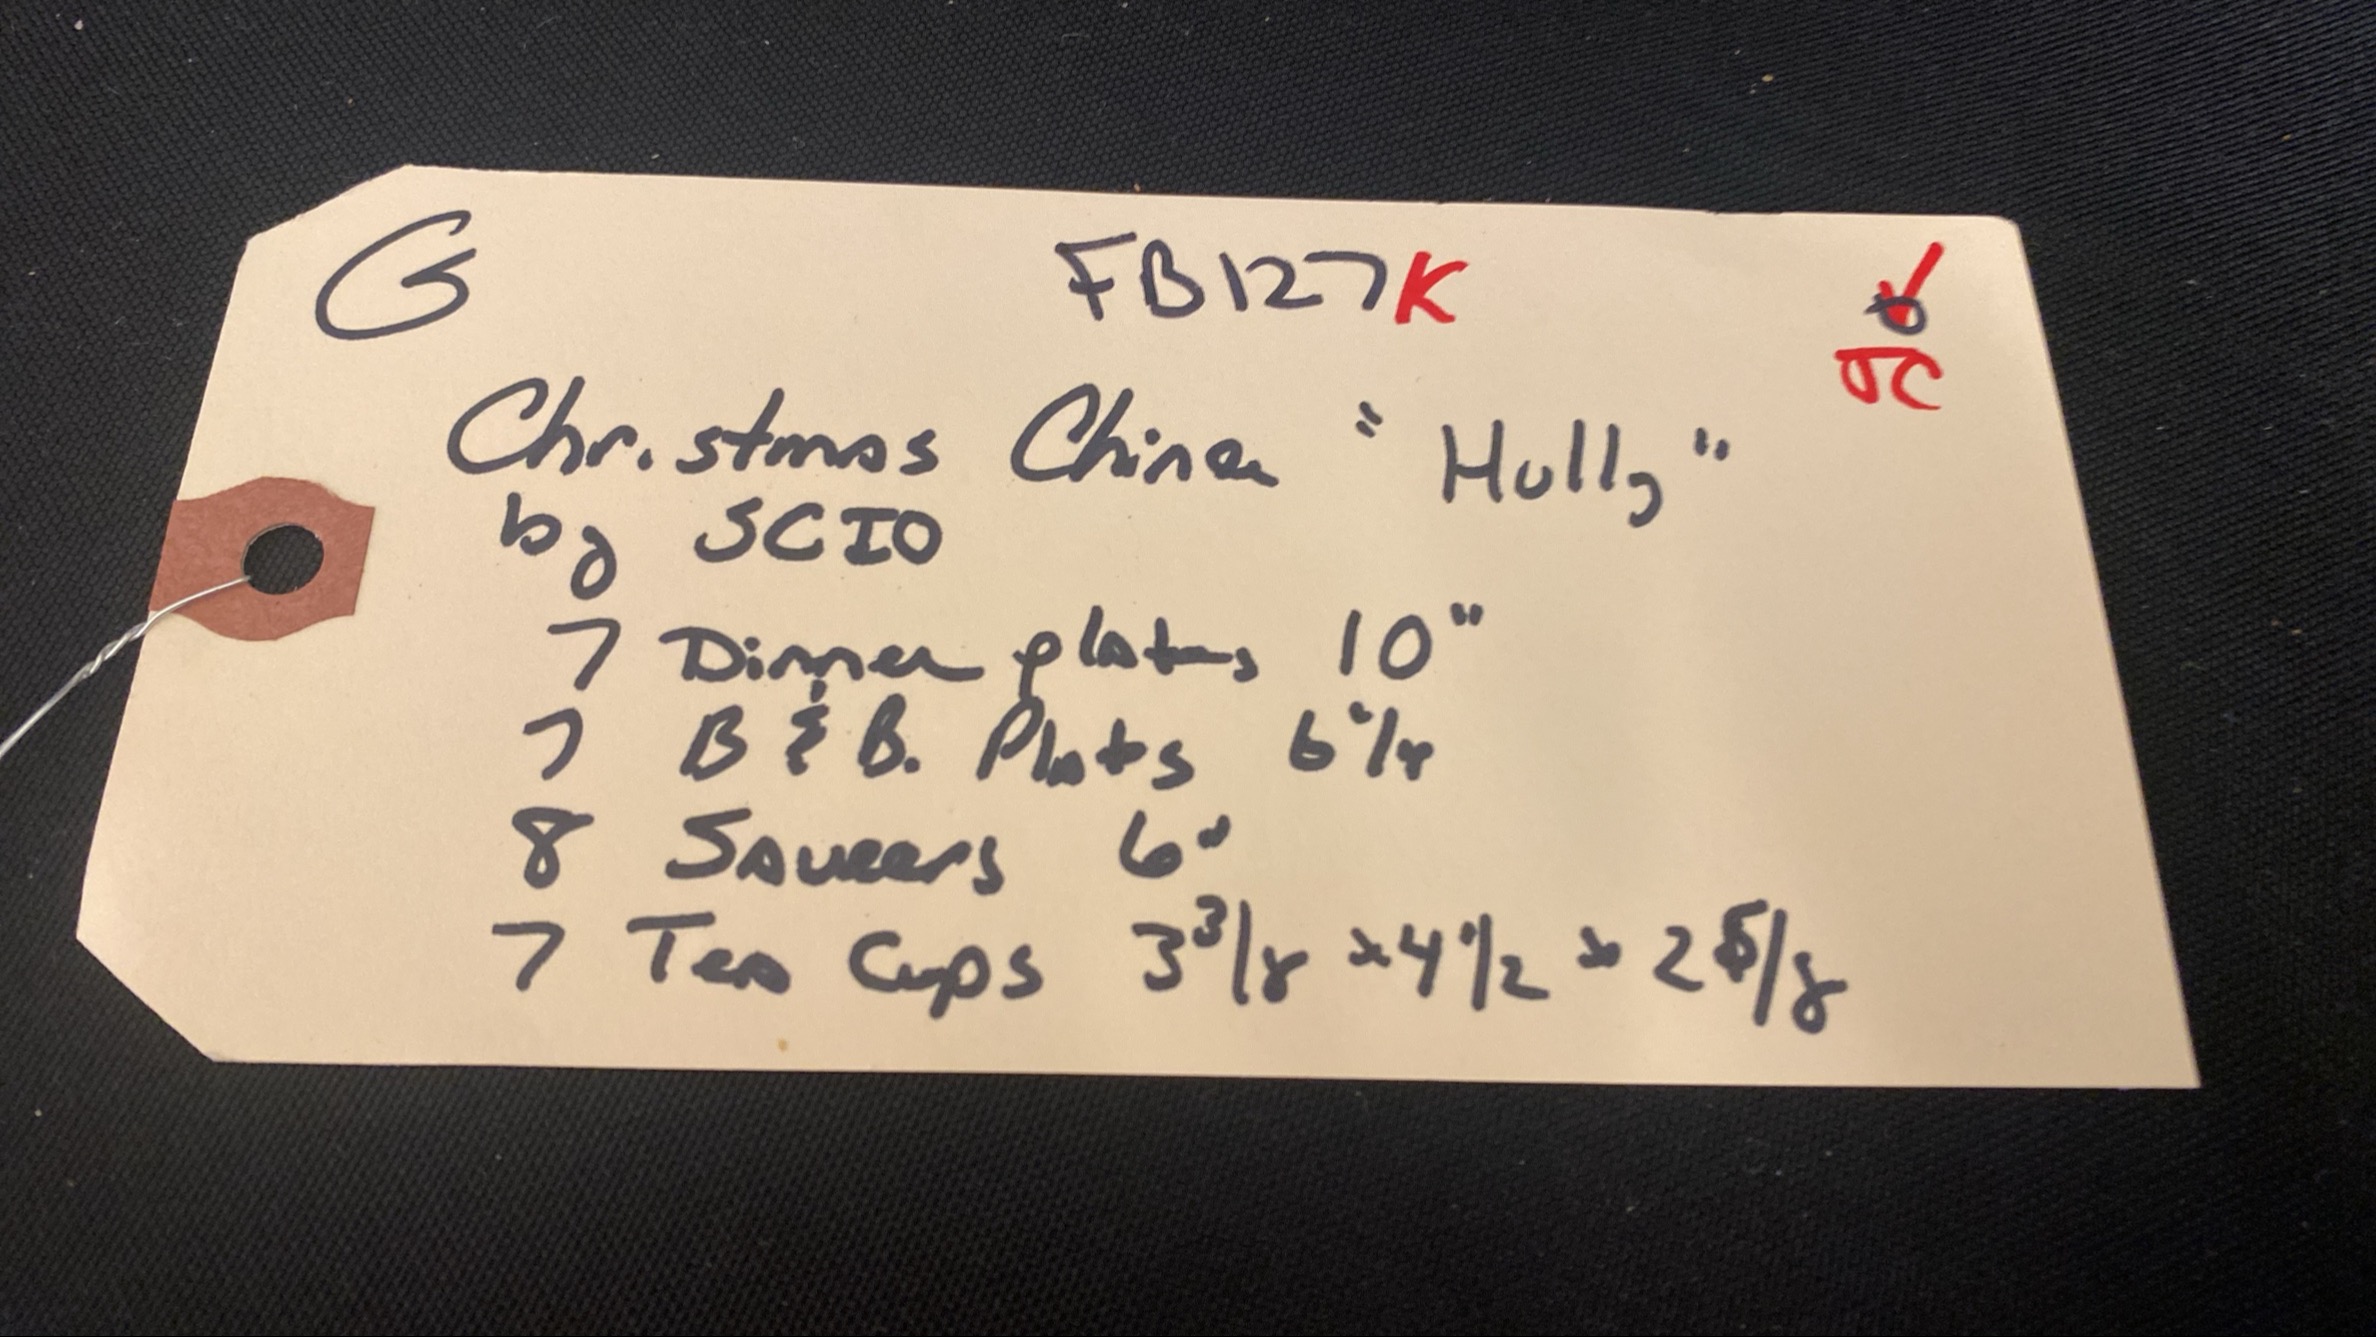 G FB127K
JC
Christmas China "Holly"
by SCIO
7 Dinner plates 10"
7 B & B. Plates 6 1/4
8 Saucers 6"
7 Tea Cups 3 3/8 x 4 1/2 x 2 5/8